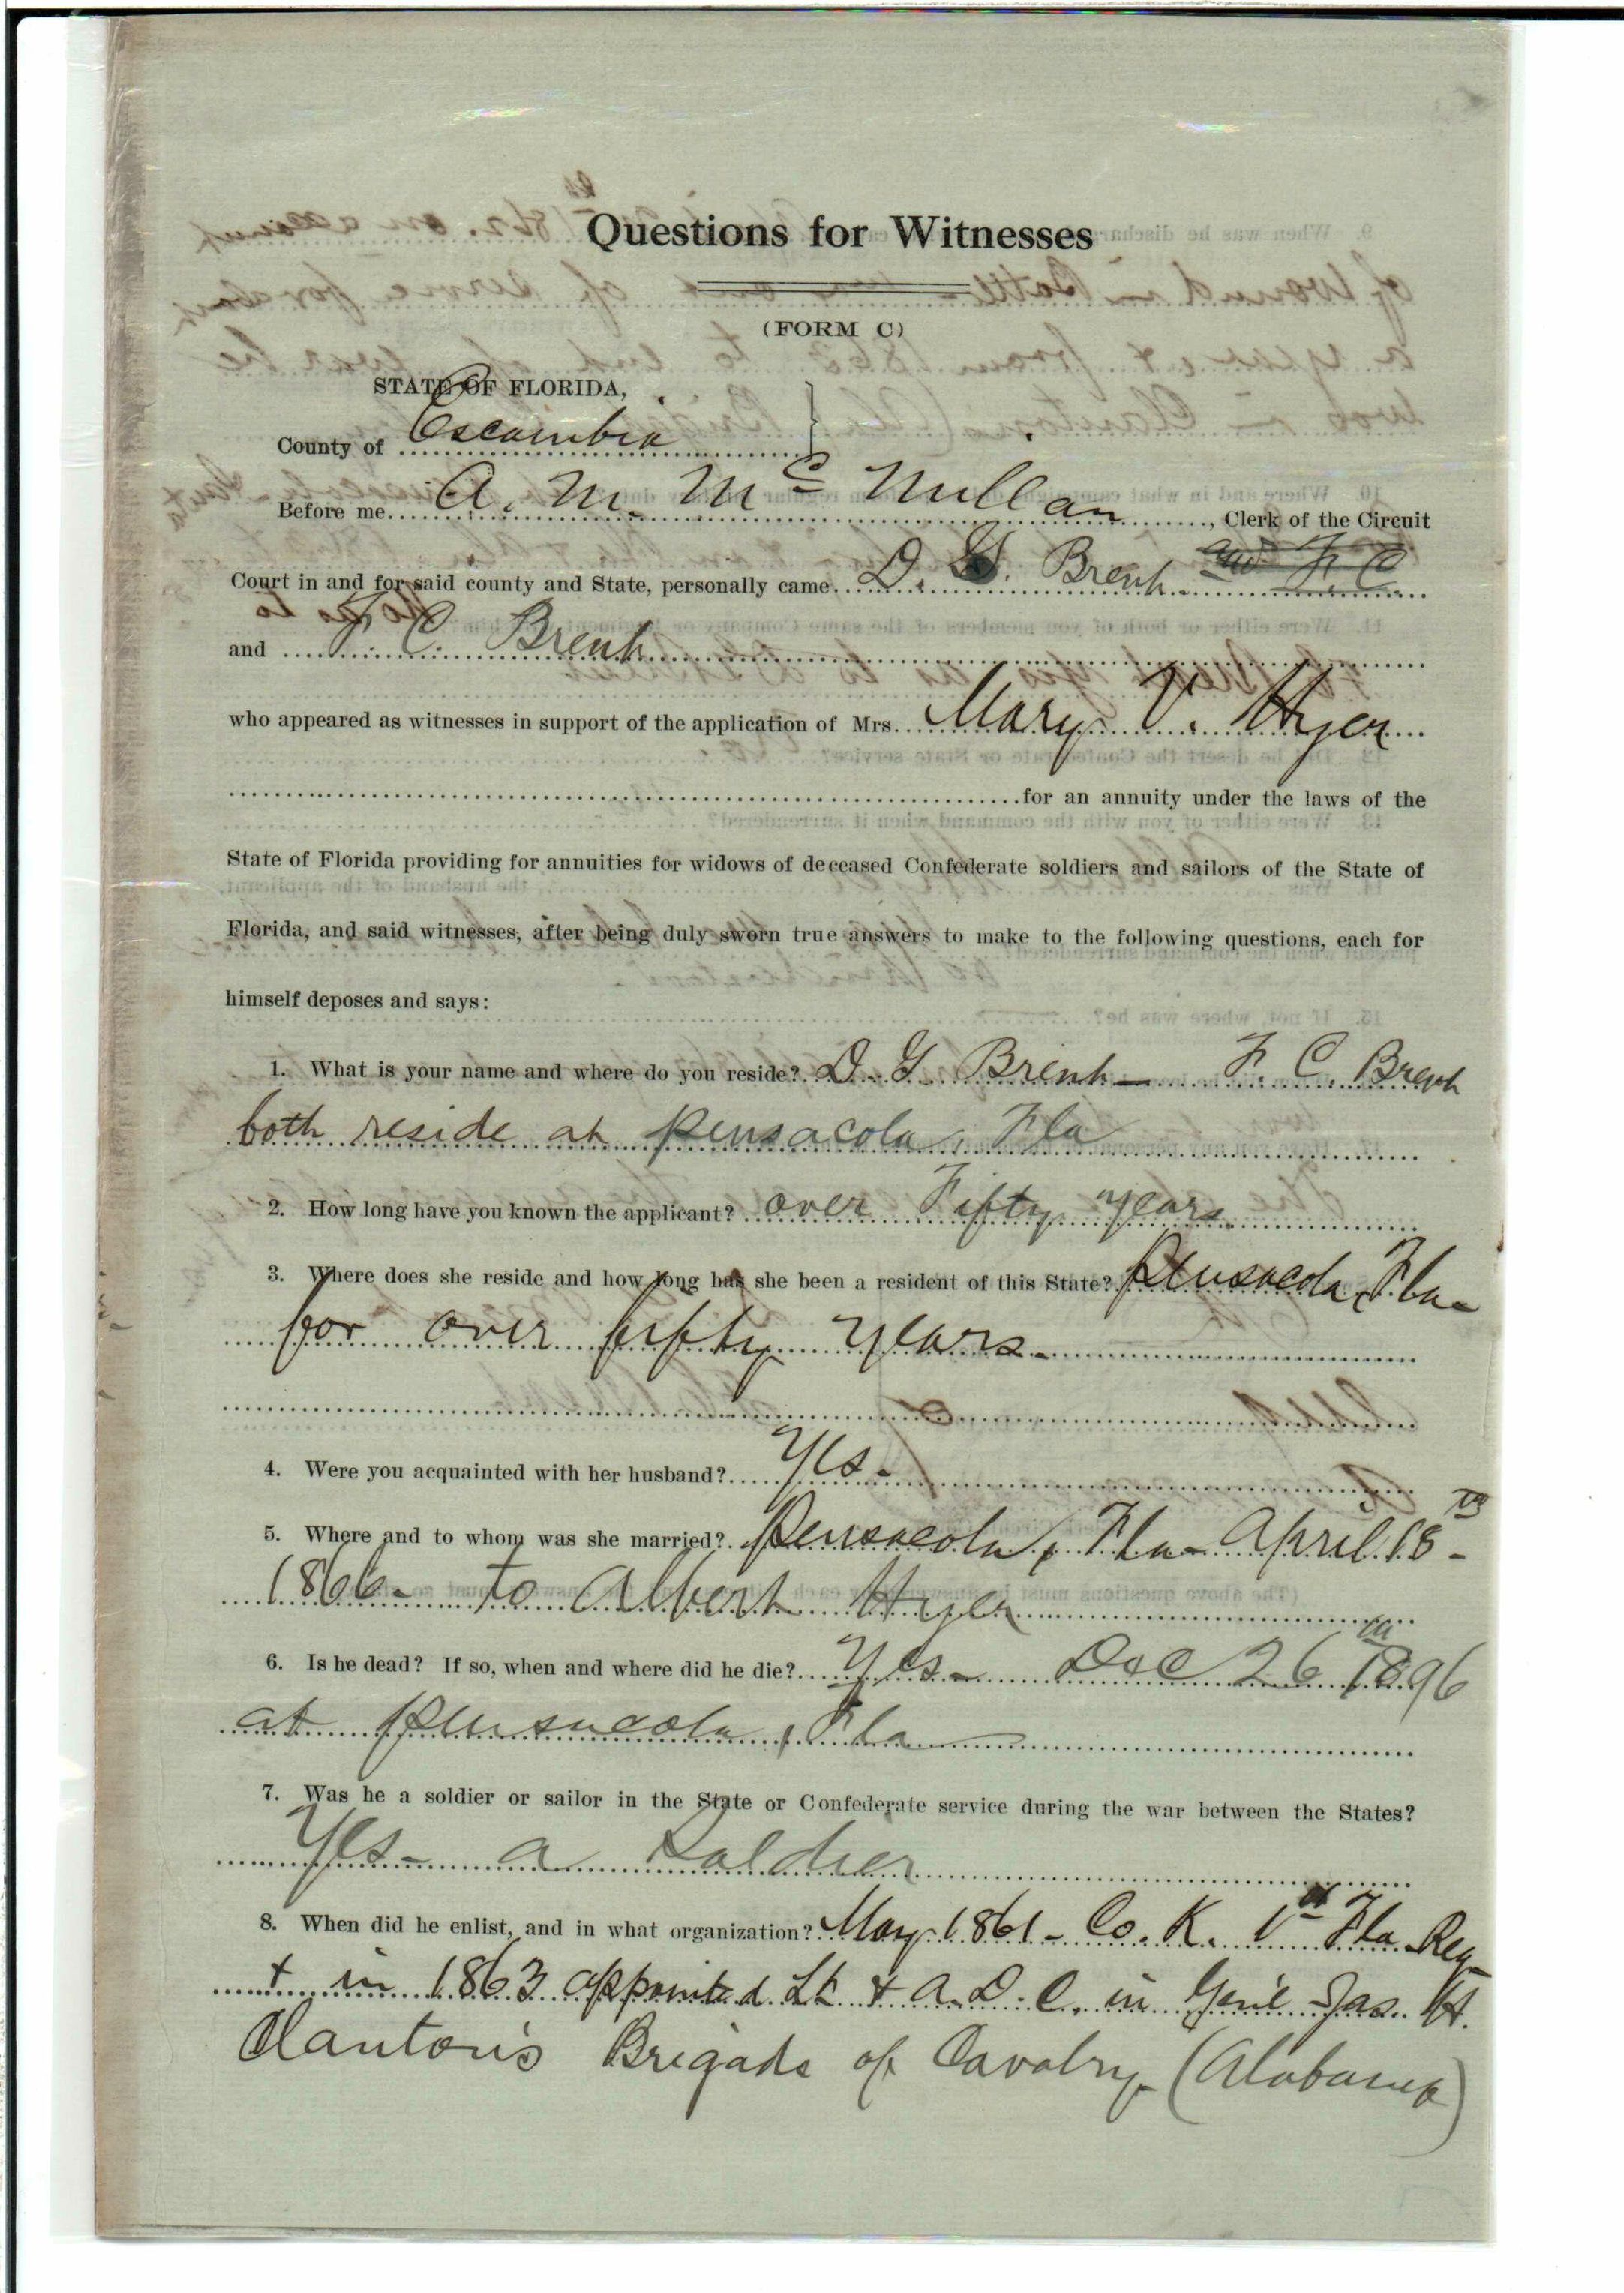 Questions for Witnesses
(FORM C)
STATE OF FLORIDA,
County of Escambia
Before me A. M. McMillan, Clerk of the Circuit
Court in and for said county and State, personally came D. G. Brent and F. C.
and F. C. Brent
who appeared as witnesses in support of the application of Mrs. Mary V. Hyer
for an annuity under the laws of the
State of Florida providing for annuities for widows of deceased Confederate soldiers and sailors of the State of
Florida, and said witnesses, after being duly sworn true answers to make to the following questions, each for
himself deposes and says:
1. What is your name and where do you reside? D. G Brent — F. C. Brent
both reside at Pensacola, Fla
2. How long have you known the applicant? over Fifty years
3. Where does she reside and how long has she been a resident of this State? Pensacola, Fla-
for over fifty years-
4. Were you acquainted with her husband? Yes-
5. Where and to whom was she married? Pensacola, Fla- April 18th-
1866- to Albert Hyer
6. Is he dead? If so, when and where did he die? Yes- Dec 26th 1896
at Pensacola, Fla
7. Was he a soldier or sailor in the State or Confederate service during the war between the States?
Yes- a Soldier
8. When did he enlist, and in what organization? May 1861- Co. K. 1st Fla Reg
+ in 1863 appointed Lt + A. D. C. in Gen'l Jas. H.
Clanton's Brigade of Cavalry (Alabama)